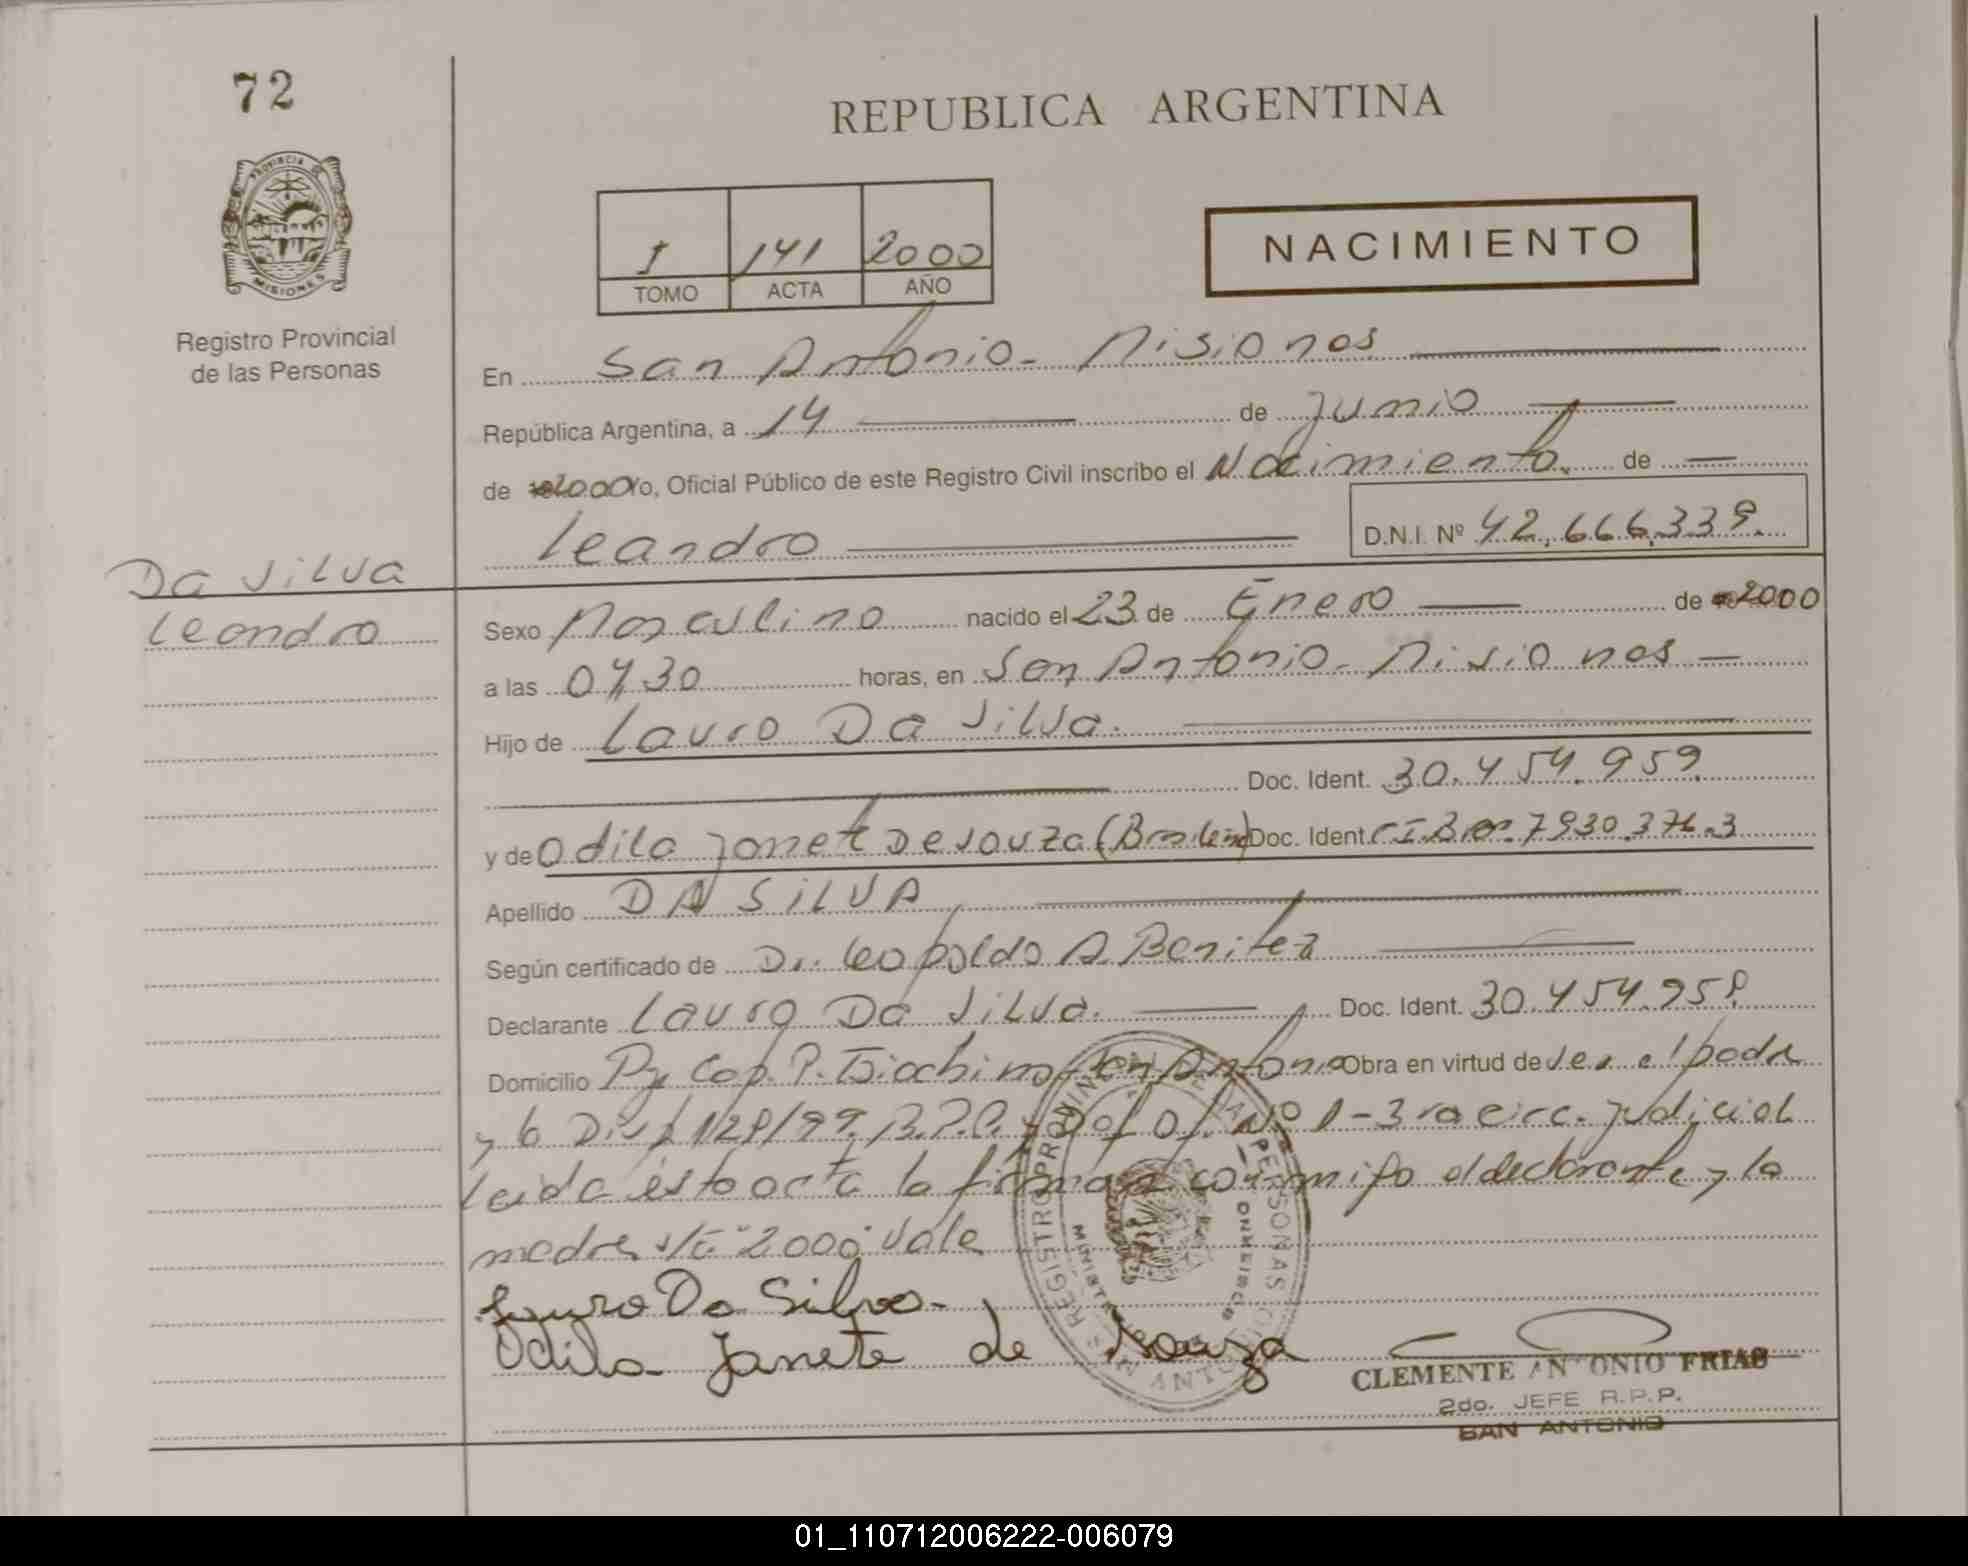 72
REPUBLICA ARGENTINA
PROVINCIA DE
MISIONES
Registro Provincial
de las Personas
1 141 2000
TOMO ACTA AÑO
NACIMIENTO
En San Antonio - Misiones
República Argentina, a 14 de Junio
de 2000 yo, Oficial Público de este Registro Civil inscribo el Nacimiento de
Leandro D.N.I. Nº 42.666.339.
Da Silva
Leandro
Sexo Masculino nacido el 23 de Enero de 2000
a las 07,30 horas, en San Antonio - Misiones
Hijo de Lauro Da Silva.
Doc. Ident. 30.454.959
y de Odila Janete De Souza (Brasileña) Doc. Ident. 7930.376.3
Apellido DA SILVA
Según certificado de Dr. Leopoldo A. Benitez
Declarante Lauro Da Silva. Doc. Ident. 30.454.959
Domicilio San Antonio Obra en virtud de ser el padre
y la 128/99 Nº 1 - 3ra circ. Judicial
Leida esta acta la firman conmigo el declarante y la
madre "2000" Vale
Lauro Da Silva.
Odila Janete de Souza
CLEMENTE ANTONIO FRIAS
2do. JEFE R.P.P.
SAN ANTONIO
01_110712006222-006079